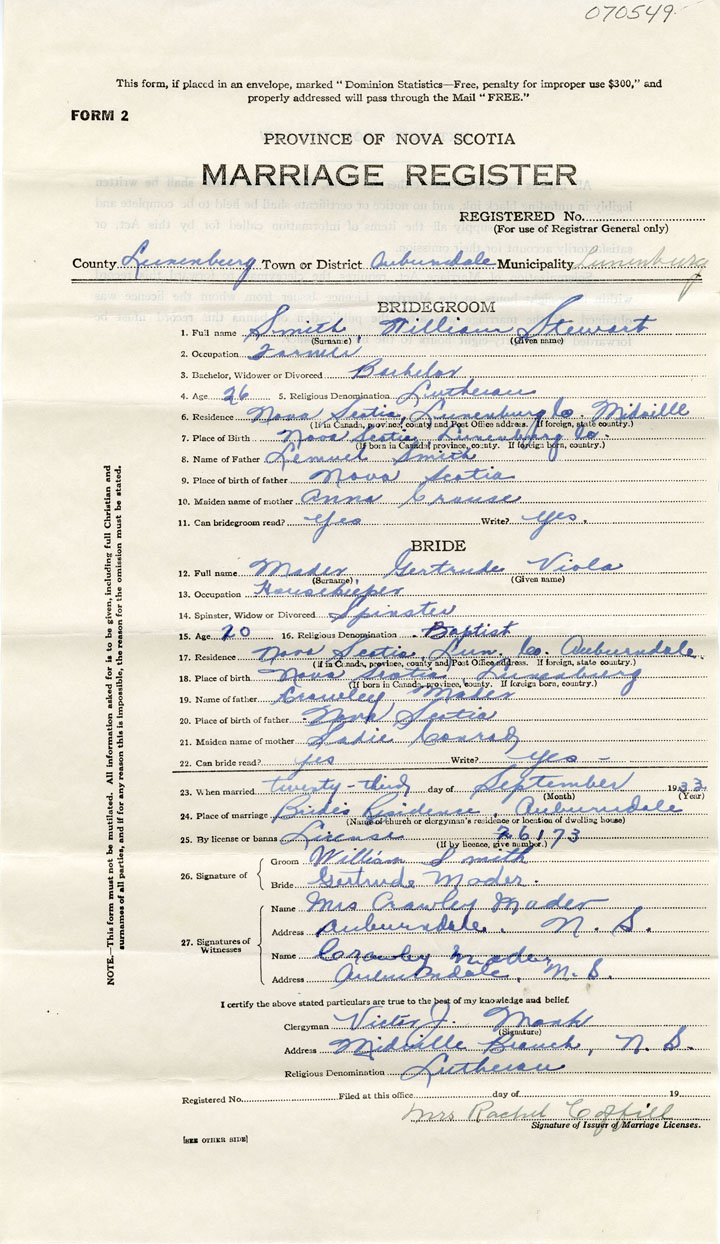 070549
This form, if placed in an envelope, marked "Dominion Statistics—Free, penalty for improper use $300," and
properly addressed will pass through the Mail "FREE."
FORM 2
PROVINCE OF NOVA SCOTIA
MARRIAGE REGISTER
REGISTERED No.
(For use of Registrar General only)
County Lunenburg Town or District Auburndale Municipality Lunenburg
BRIDEGROOM
1. Full name Smith, William Stewart
(Surname) (Given name)
2. Occupation Farmer
3. Bachelor, Widower or Divorced Bachelor
4. Age 26 5. Religious Denomination Lutheran
6. Residence Nova Scotia, Lunenburg Co. Midville
(If in Canada, province, county and Post Office address. If foreign, state country.)
7. Place of Birth Nova Scotia Lunenburg Co.
(If born in Canada, province, county. If foreign born, country.)
8. Name of Father Lemuel Smith
9. Place of birth of father Nova Scotia
10. Maiden name of mother Anna Crouse
11. Can bridegroom read? Yes Write? Yes.
BRIDE
12. Full name Mader, Gertrude Viola
(Surname) (Given name)
13. Occupation Housekeeper
14. Spinster, Widow or Divorced Spinster
15. Age 20 16. Religious Denomination Baptist
17. Residence Nova Scotia, Lun. Co. Auburndale.
(If in Canada, province, county and Post Office address. If foreign, state country.)
18. Place of birth Nova Scotia Lunenburg
(If born in Canada, province, county. If foreign born, country.)
19. Name of father Crawley Mader
20. Place of birth of father Nova Scotia
21. Maiden name of mother Sadie Conrad
22. Can bride read? yes Write? yes -
23. When married twenty-third day of September 1933
(Month) (Year)
24. Place of marriage Brides Residence, Auburndale
(Name of church or clergyman's residence or location of dwelling house)
25. By license or banns License 26173
(If by licence, give number.)
26. Signature of Groom William Smith
Bride Gertrude Mader.
27. Signatures of Witnesses Name Mrs Crawley Mader
Address Auburndale, N. S.
Name Crawley Mader
Address Auburndale, N. S.
I certify the above stated particulars are true to the best of my knowledge and belief.
Clergyman Victor J. Monk
(Signature)
Address Midville Branch, N. S.
Religious Denomination Lutheran
Registered No. Filed at this office day of 19
Mrs Rachel
Signature of Issuer of Marriage Licenses.
[SEE OTHER SIDE]
NOTE.—This form must not be mutilated. All information asked for is to be given, including full Christian and
surnames of all parties, and if for any reason this is impossible, the reason for the omission must be stated.